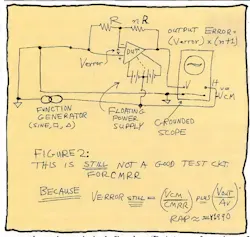 R
nR
OUTPUT ERROR=
(Verror) x (n+1)
DUT
Verror
V
H
VCM
FUNCTION
GENERATOR
(SINE, □, Δ)
FLOATING
POWER
SUPPLY
GROUNDED
SCOPE
FIGURE 2:
THIS IS STILL NOT A GOOD TEST CKT.
FOR CMRR
BECAUSE
VERROR STILL = (VCM/CMRR) PLUS (VOUT/AV)
RAP